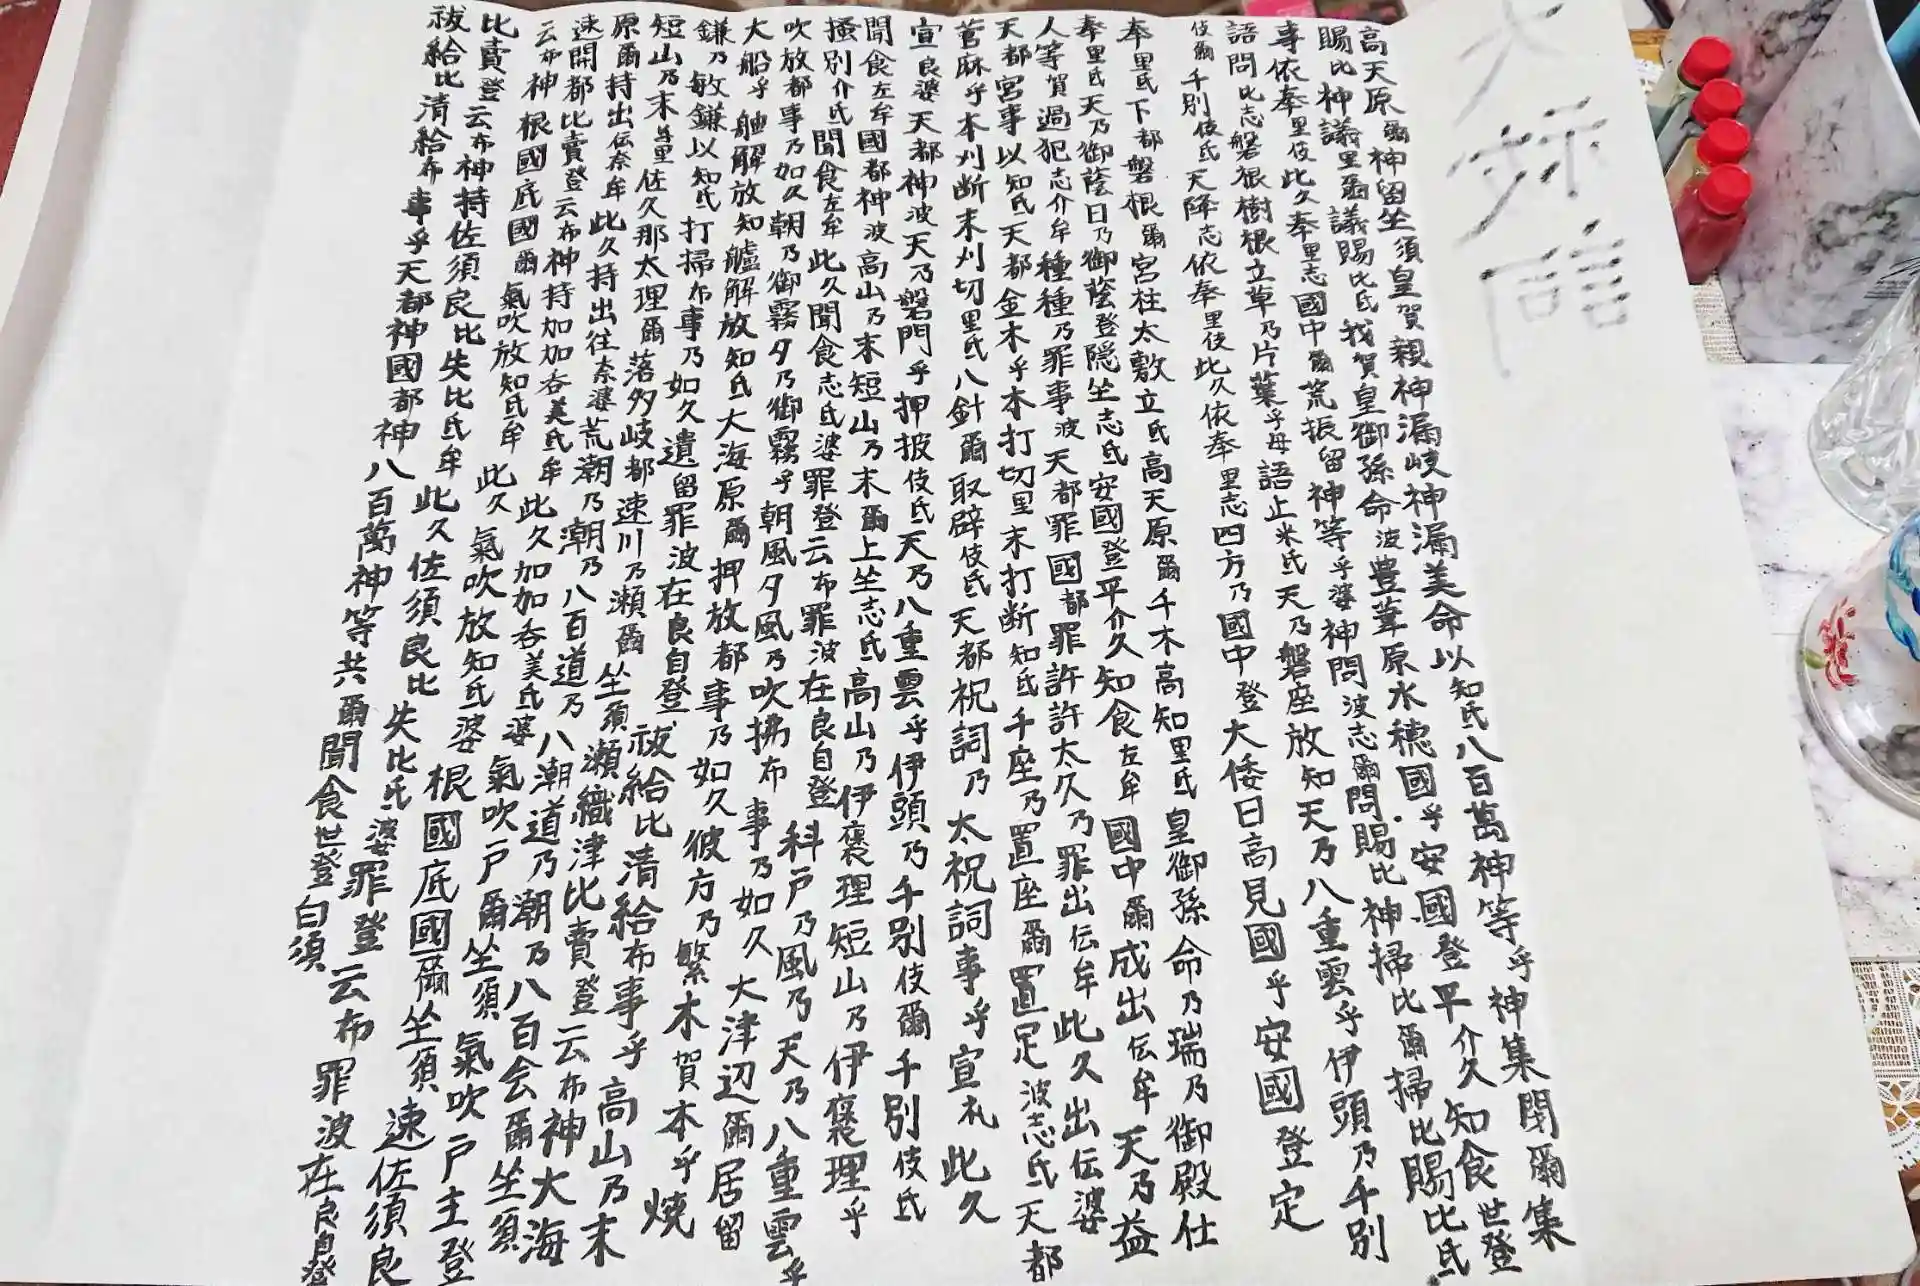 大祓詞
高天原爾神留坐須皇賀親神漏岐神漏美命以知氐八百萬神等乎神集閇爾集
賜比神議里爾議賜比氐我賀皇御孫命波豊葦原水穂國乎安國登平介久知食世登
事依奉里伎此久奉里志國中爾荒振留神等乎婆神問波志爾問賜比神掃比爾掃比賜比氐
語問比志磐根樹根立草乃片葉乎母語止米氐天乃磐座放知天乃八重雲乎伊頭乃千別
伎爾千別伎氐天降志依奉里伎此久依奉里志四方乃國中登大倭日高見國乎安國登定
奉里氐下都磐根爾宮柱太敷立氐高天原爾千木高知里氐皇御孫命乃瑞乃御殿仕
奉里氐天乃御蔭日乃御蔭登隠坐志氐安國登平介久知食左牟國中爾成出伝牟天乃益
人等賀過犯志介牟種種乃罪事波天都罪國都罪許許太久乃罪出伝牟此久出伝婆
天都宮事以知氐天都金木乎本打切里末打断知氐千座乃置座爾置足波志氐天都
菅麻乎本刈断末刈切里氐八針爾取辟伎氐天都祝詞乃太祝詞事乎宣礼此久
宣良婆天都神波天乃磐門乎押披伎氐天乃八重雲乎伊頭乃千別伎爾千別伎氐
聞食左牟國都神波高山乃末短山乃末爾上坐志氐高山乃伊褒理短山乃伊褒理乎
掻別介氐聞食左牟此久聞食志氐婆罪登云布罪波在良自登科戸乃風乃天乃八重雲乎
吹放都事乃如久朝乃御霧夕乃御霧乎朝風夕風乃吹拂布事乃如久大津辺爾居留
大船乎舳解放知艫解放知氐大海原爾押放都事乃如久彼方乃繁木賀本乎焼
鎌乃敏鎌以知氐打掃布事乃如久遺留罪波在良自登祓給比清給布事乎高山乃末
短山乃末与里佐久那太理爾落多岐都速川乃瀬爾坐須瀬織津比賣登云布神大海
原爾持出伝奈牟此久持出往奈婆荒潮乃潮乃八百道乃八潮道乃潮乃八百会爾坐須
速開都比賣登云布神持加加呑美氐牟此久加加呑美氐婆氣吹戸爾坐須氣吹戸主登
云布神根國底國爾氣吹放知氐牟此久氣吹放知氐婆根國底國爾坐須速佐須良
比賣登云布神持佐須良比失比氐牟此久佐須良比失比氐婆罪登云布罪波在良自登
祓給比清給布事乎天都神國都神八百萬神等共爾聞食世登白須